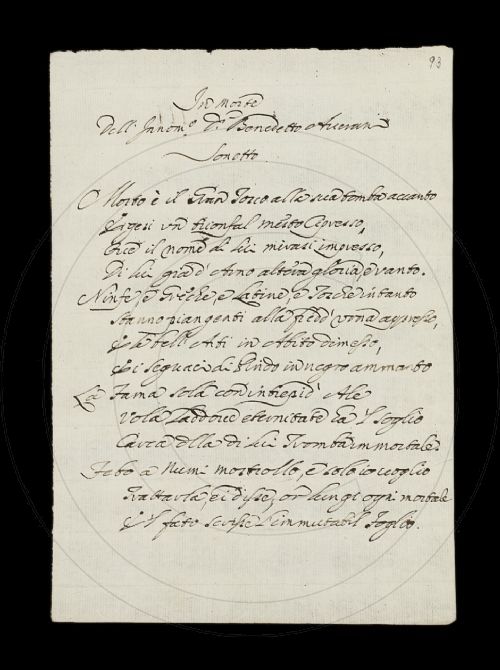 93
In Morte
Dell' Innom.º D.r Benedetto Averani
Sonetto
Morto è il Gran Tosco alla sua tomba accanto
Ergesi un trionfal mesto Cipresso,
ov'è il nome di lui mirasi impresso,
Di lui già d'Arno altera gloria, e vanto.
Ninfe, e Greche e Latine, e Tosche intanto
stanno piangenti alla fredd' urna appresso,
E le bell' Arti in abito dimesso,
Ei seguaci di Pindo in negro ammanto
La Fama sola con intrepid' Ale
vola laddove eternitate ha 'l soglio
Carca ella di lui Tromba immortale.
Febo a Numi mostrollo, e solo io voglio
Trattarla, ei disse, or lungi ogni mortale
E 'l fato scrisse l'immutabil foglio.